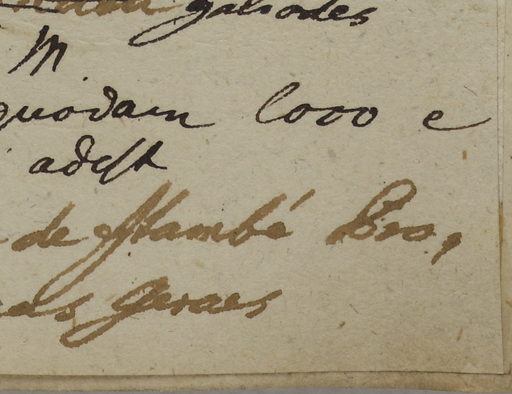 galiodes
M
quodam loco e
adest
de Itambé Pro,
as Geraes